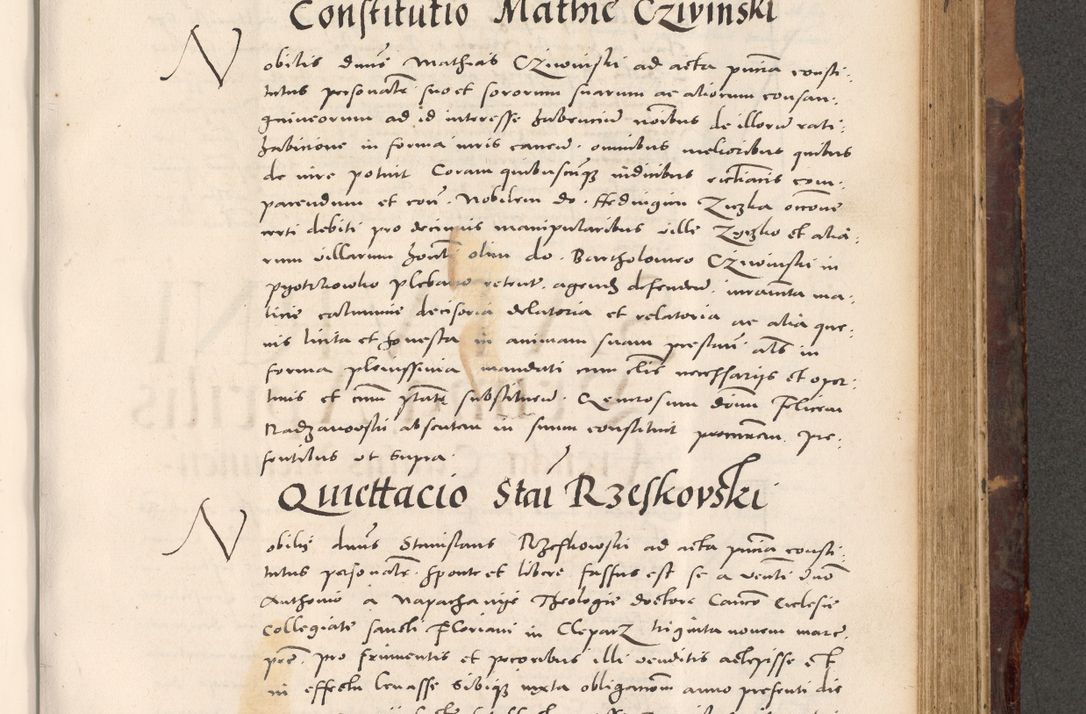 Constitutio Mathie Czivinski
Nobilis dnus Mathias Czivinski ad acta pntia consti:
tutus personalr suo et sororum suarum ac aliorum consan:
guineorum ad id interesse habencium noibus de illorum rati:
habitione in forma iuris cavens omnibus melioribus quibus
de iure potuit Coram quibuscunq iudicibus ecclasticis com:
parendum et con Nobilem do. Hedvigim Zuzka occone
certi debiti pro decimis manipularibus ville Zyzko et alia:
rum villarum olim do. Bartholomeo Czivinski in
plebano agend defendend iuramta ma:
licie calumnie decisoria delatoria et relatoria ac alia que:
vis licita et honesta in animam suam prestan als in
forma plenissima mandati cum clis necessariis et opor:
tunis et cum ptate substituen Generosum dnum Felicem
Radzanowski absentem in suum constituit procuratorem pre:
sentibus ut supra
Quiettacio Stai Rzeskovski
Nobilis dnus Stanislaus Rzeskowski ad acta pntia consti:
tutus personalr sponte et libere fassus est se a venli dno
Anthonio a Napachanije Theologie doctore Canco Ecclesie
Collegiate sancti Floriani in Cleparz triginta novem marc.
pro frumentis et pecoribus illi venditis accepisse et
in effectu levasse sibique iuxta obligationem anno presenti die